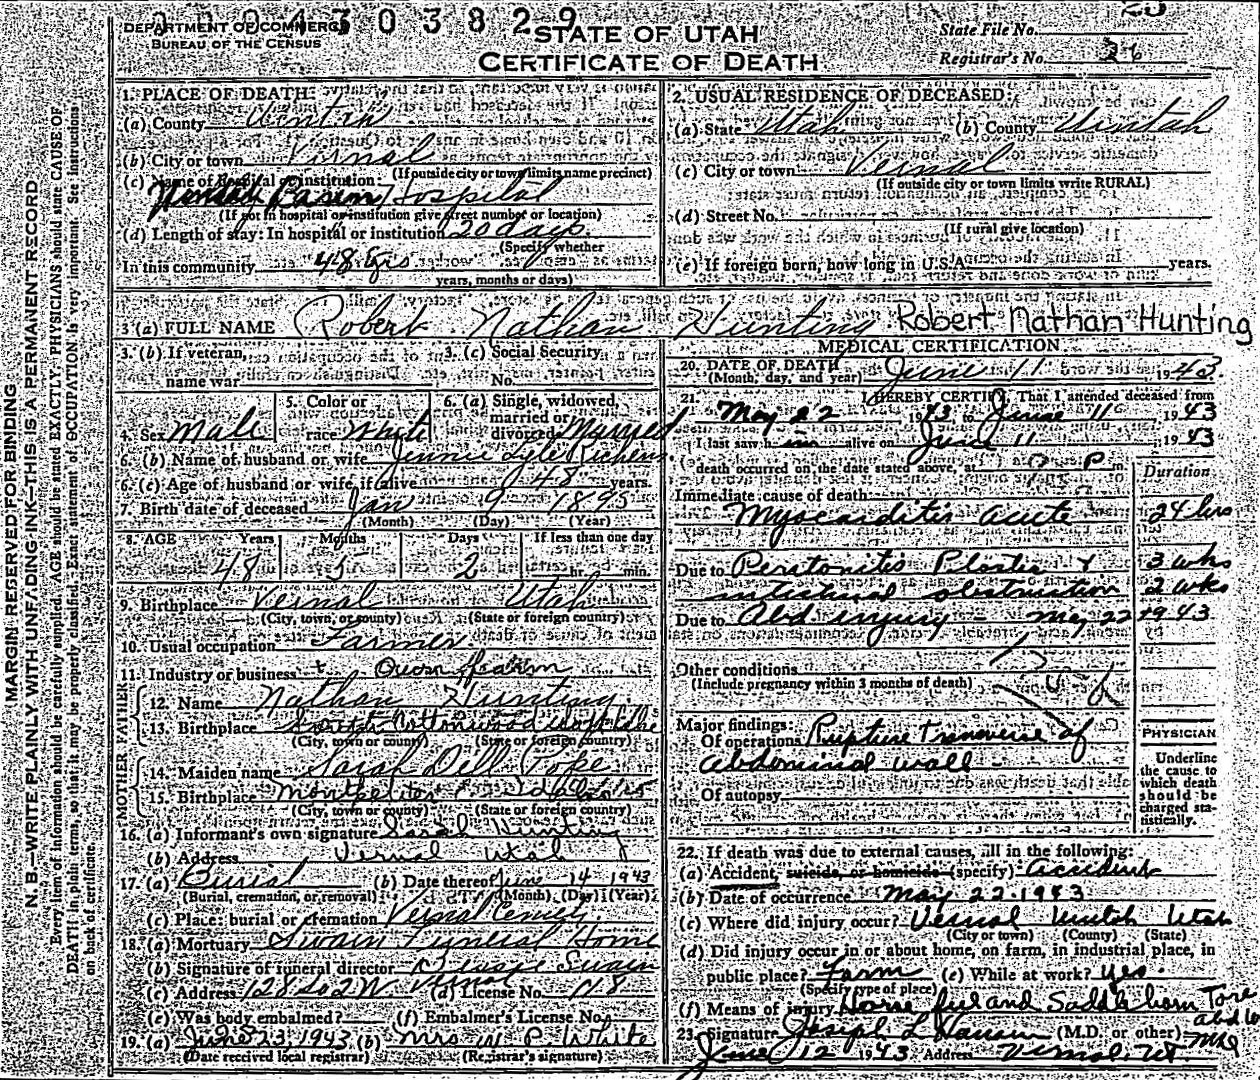 DEPARTMENT OF COMMERCE
BUREAU OF THE CENSUS
0 0 0 4 3 0 3 8 2 9
STATE OF UTAH
CERTIFICATE OF DEATH
State File No.
Registrar's No. 26
MARGIN RESERVED FOR BINDING
N. B.—WRITE PLAINLY WITH UNFADING INK—THIS IS A PERMANENT RECORD
Every item of information should be carefully supplied. AGE should be stated EXACTLY. PHYSICIANS should state CAUSE OF
DEATH in plain terms, so that it may be properly classified. Exact statement of OCCUPATION is very important. See instructions
on back of certificate.
1. PLACE OF DEATH:
(a) County Uintah
(b) City or town Vernal
(If outside city or town limits name precinct)
(c) Name of hospital or institution:
Hospital
(If not in hospital or institution give street number or location)
(d) Length of stay: In hospital or institution 20 days
(Specify whether
In this community 48 yrs
years, months or days)
2. USUAL RESIDENCE OF DECEASED:
(a) State Utah (b) County Uintah
(c) City or town Vernal
(If outside city or town limits write RURAL)
(d) Street No.
(If rural give location)
(e) If foreign born, how long in U.S.A. years.
3 (a) FULL NAME Robert Nathan Hunting Robert Nathan Hunting
3. (b) If veteran, name war
3. (c) Social Security No.
4. Sex Male
5. Color or race White
6. (a) Single, widowed, married or divorced Married
6. (b) Name of husband or wife Jennie Lyle Richens
6. (c) Age of husband or wife, if alive 48 years.
7. Birth date of deceased Jan 9 1895
(Month) (Day) (Year)
8. AGE Years Months Days If less than one day
48 5 2 hr. min.
9. Birthplace Vernal Utah
(City, town, or county) (State or foreign country)
10. Usual occupation Farmer
11. Industry or business Own farm
FATHER
12. Name Nathan Hunting
13. Birthplace South Cottonwood
(City, town or county) (State or foreign country)
MOTHER
14. Maiden name Sarah Dell Pope
15. Birthplace Montpelier Idaho
(City, town or county) (State or foreign country)
16. (a) Informant's own signature Sarah Hunting
(b) Address Vernal Utah
17. (a) Burial (b) Date thereof June 14 1943
(Burial, cremation, or removal) (Month) (Day) (Year)
(c) Place: burial or cremation Vernal
18. (a) Mortuary Swain Funeral Home
(b) Signature of funeral director Swain
(c) Address Vernal (d) License No.
(e) Was body embalmed? (f) Embalmer's License No.
19. (a) June 23, 1943 (b) Mrs W. P. White
(Date received local registrar) (Registrar's signature)
MEDICAL CERTIFICATION
20. DATE OF DEATH June 11 1943.
(Month, day, and year)
21. I HEREBY CERTIFY, That I attended deceased from
May 22 1943 to June 11 1943
I last saw him alive on June 11, 1943
death occurred on the date stated above, at P m.
Duration
Immediate cause of death
Myocarditis acute 24 hrs
Due to Peritonitis Plastic & 3 wks
intestinal obstruction 2 wks
Due to Abd injury - May 22 1943
Other conditions
(Include pregnancy within 3 months of death)
Major findings:
Of operations Rupture Transverse of
abdominal wall -
Of autopsy
PHYSICIAN
Underline
the cause to
which death
should be
charged sta-
tistically.
22. If death was due to external causes, fill in the following:
(a) Accident, suicide, or homicide (specify) accident
(b) Date of occurrence May 22 1943
(c) Where did injury occur? Vernal Uintah Utah
(City or town) (County) (State)
(d) Did injury occur in or about home, on farm, in industrial place, in
public place? Farm (e) While at work? yes.
(Specify type of place)
(f) Means of injury Horse fell and Saddle horn Tore
23. Signature Joseph L Hansen (M.D. or other)
June 12 1943 Address Vernal, Ut.